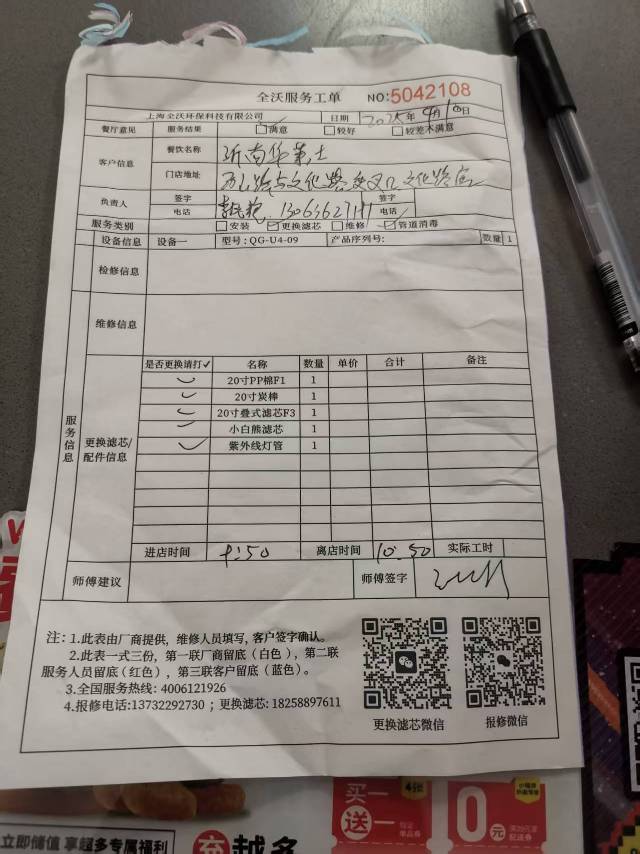 全沃服务工单 NO:5042108
上海全沃环保科技有限公司 日期 2025年4月10日
餐厅意见 服务结果 满意 较好 较差不满意
客户信息 餐饮名称 沂南华莱士
门店地址 历山路与文化路交叉口文化路店
负责人 签字 签字
电话 电话
服务类别 安装 更换滤芯 维修 管道消毒
设备信息 设备一 型号:QG-U4-09 产品序列号: 数量 1
检修信息
维修信息
服务信息
更换滤芯/配件信息
是否更换请打✓ 名称 数量 单价 合计 备注
20寸PP棉F1 1
20寸炭棒 1
20寸叠式滤芯F3 1
小白熊滤芯 1
紫外线灯管 1
进店时间 9:50 离店时间 10:50 实际工时
师傅建议 师傅签字
注: 1.此表由厂商提供, 维修人员填写, 客户签字确认。
2.此表一式三份, 第一联厂商留底(白色), 第二联
服务人员留底(红色), 第三联客户留底(蓝色)。
3.全国服务热线: 4006121926
4.报修电话:13732292730 ; 更换滤芯: 18258897611
更换滤芯微信 报修微信
买一送一 4张
0元
立即储值 享超多专属福利
充越多